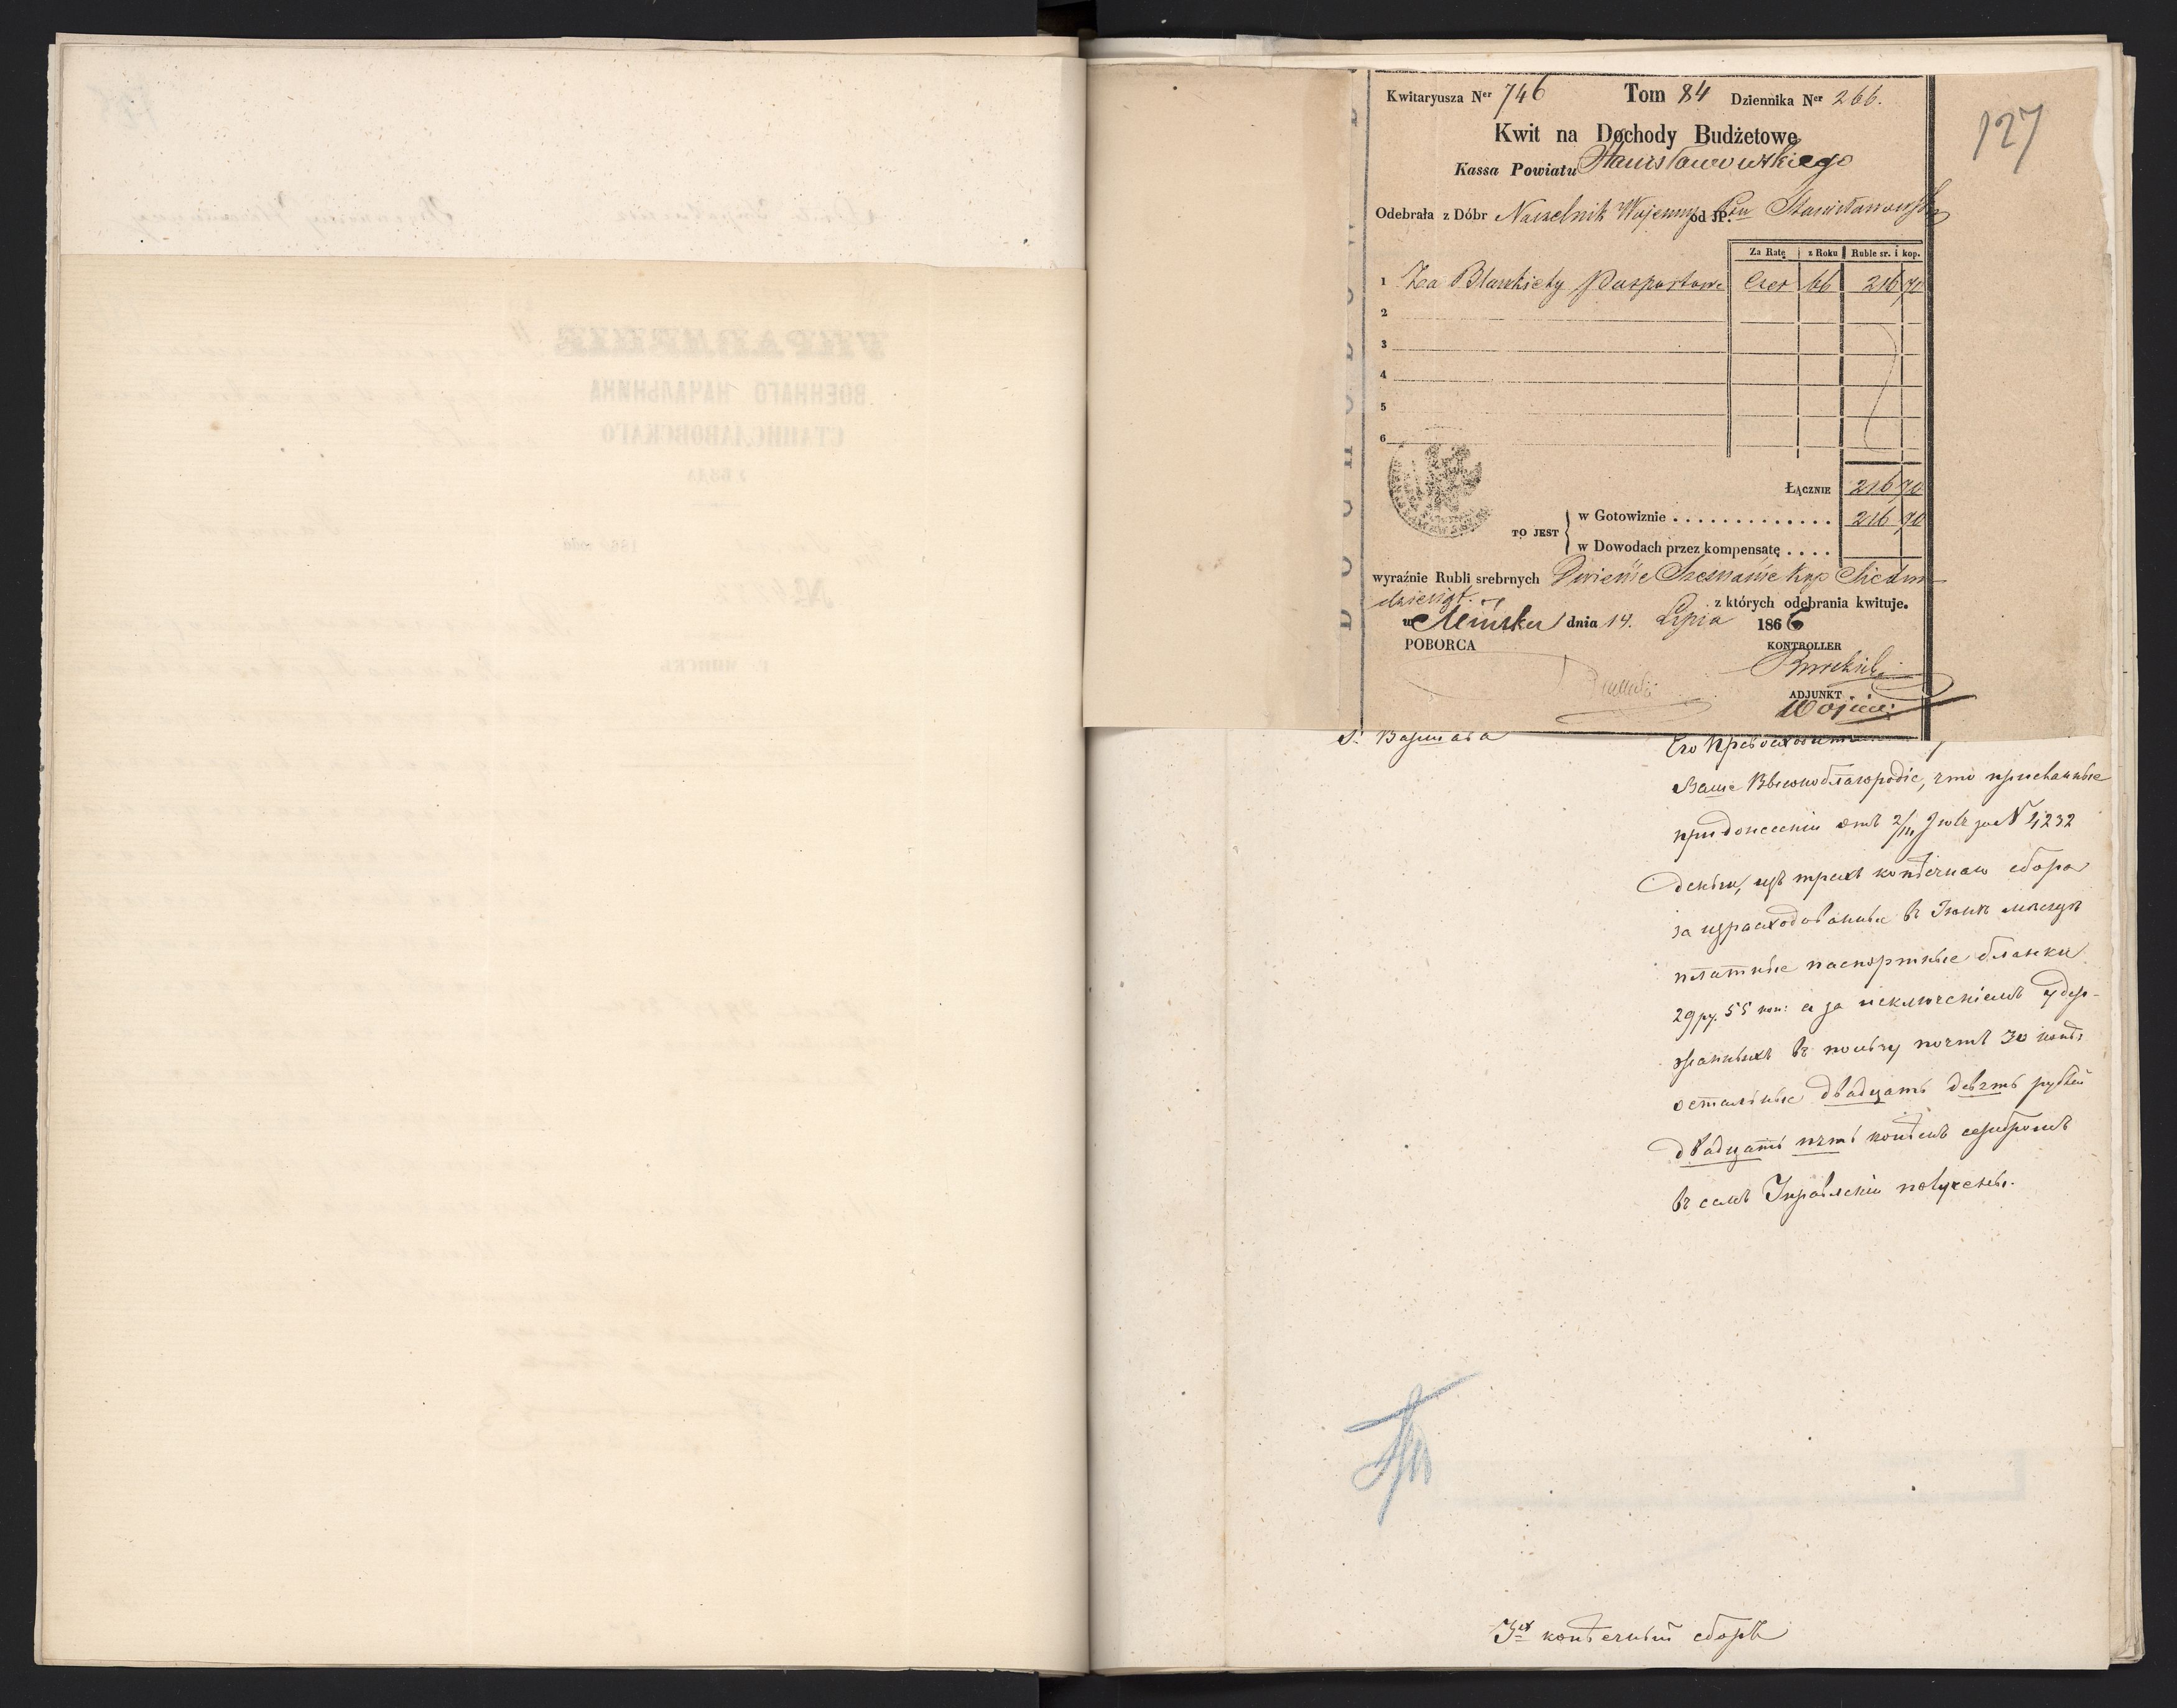 127
Kwitaryusza Ner 746 Tom 84 Dziennika Ner 266.
Kwit na Dochody Budżetowe
Kassa Powiatu Stanisławowskiego
Odebrała z Dóbr Naczelnik Wojenny od JP. Pow Stanisławowski
Za Ratę z Roku Ruble sr. i kop.
1 Za Blankiety Paszportowe Czer 66 216 70
2
3
4
5
6
ŁĄCZNIE 216 70
TO JEST w Gotowiznie 216 70
w Dowodach przez kompensatę
wyraźnie Rubli srebrnych Dwieście Szesnaście kop Siedm
dziesiąt.
z których odebrania kwituje.
w Mińsku dnia 14. Lipca 1866
POBORCA KONTROLLER
ADJUNKT
Его Превосходит
Ваше Высокоблагородіе, что присланные
при донесеніи отъ 2/14 Іюля за № 4232
деньги, изъ трехъ копѣечнаго сбора
за израсходованные въ Іюнѣ мѣсяцѣ
платные паспортные бланки
29 ру. 55 коп: а за исключеніемъ удер-
жанныхъ въ пользу почтъ 30 копѣ:
остальные двадцать девять рублей
двадцать пять копѣекъ серебромъ
въ семъ Управленіи получены.
3ех копѣечный сборъ
УПРАВЛЕНІЕ
ВОЕННАГО НАЧАЛЬНИКА
СТАНИСЛАВОВСКАГО
УѢЗДА